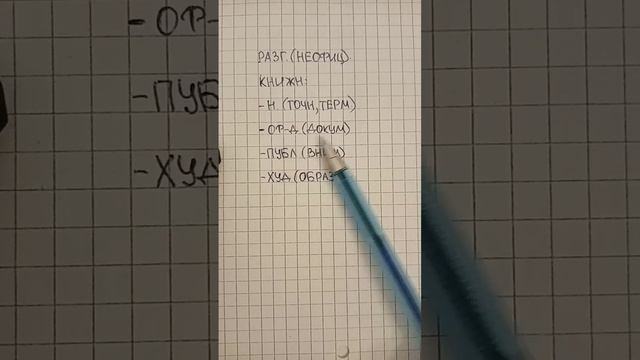 РАЗГ (НЕОФИЦ)
КНИЖН:
-Н (ТОЧН, ТЕРМ)
-ОФ-Д (ДОКУМ)
-ПУБЛ
-ХУД (ОБРАЗ